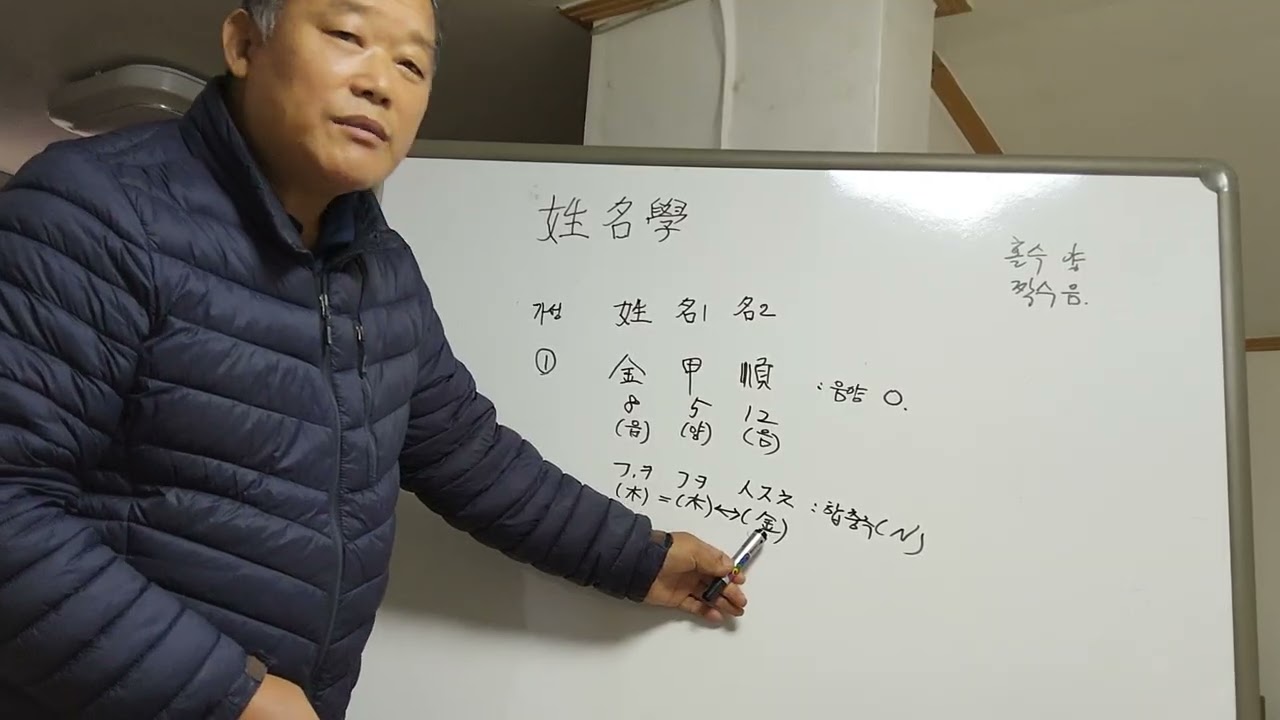 姓名學
홀수 양
짝수 음.
가성 姓 名1 名2
① 金 甲 順 : 음양 O.
8 5 12
(음) (양) (음)
ㄱ,ㅋ ㄱㅋ ㅅㅈㅊ
(木) = (木) ↔ (金) : 합충수(N)